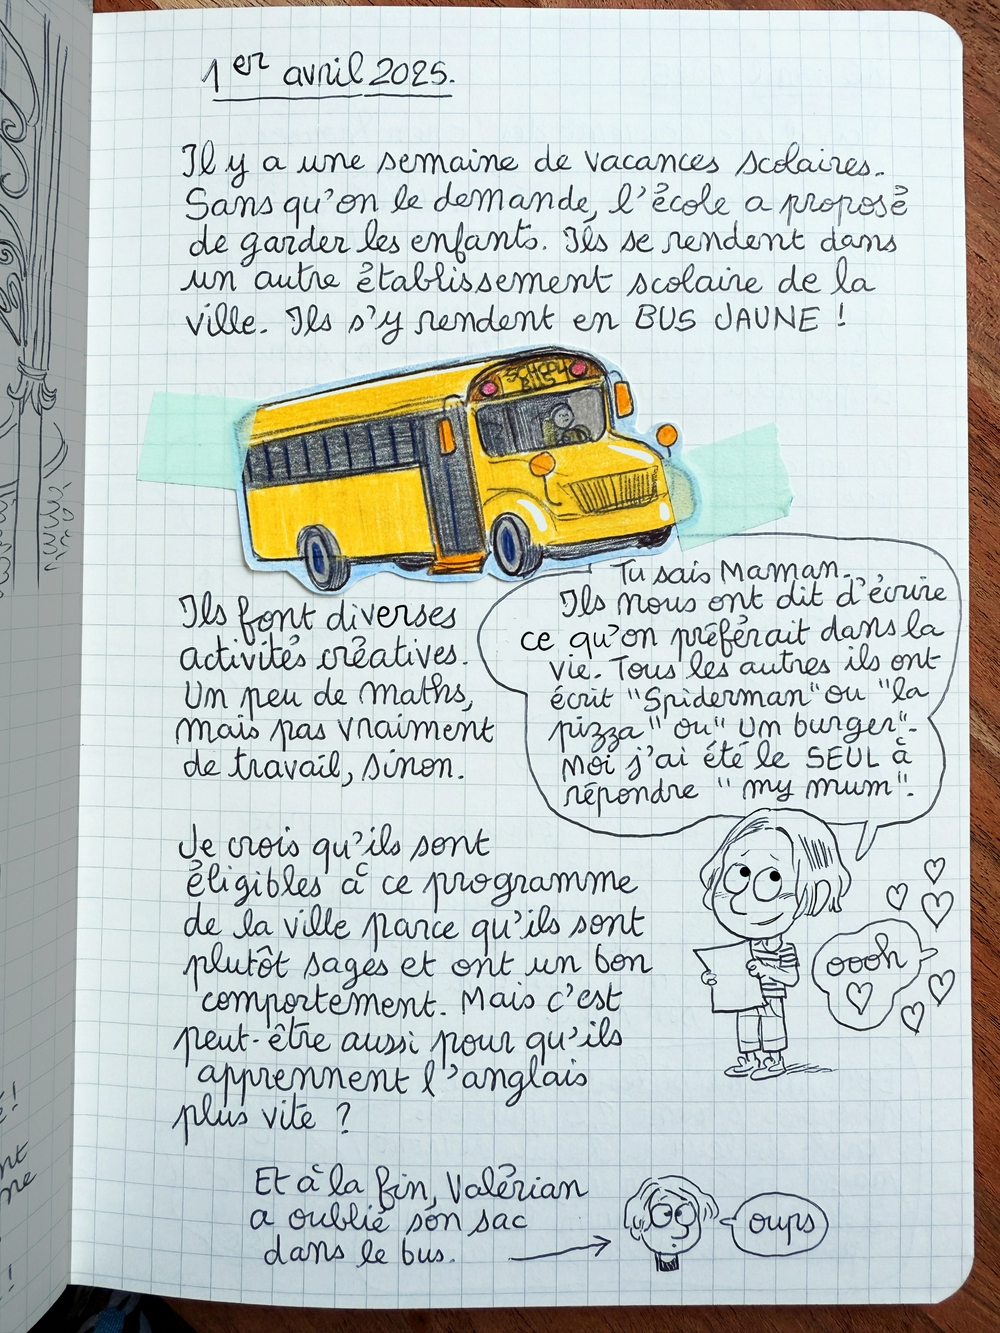 1er avril 2025.
Il y a une semaine de vacances scolaires.
Sans qu'on le demande, l'école a proposé
de garder les enfants. Ils se rendent dans
un autre établissement scolaire de la
ville. Ils s'y rendent en BUS JAUNE !
SCHOOL
BUS
Tu sais Maman.
Ils nous ont dit d'écrire
ce qu'on préférait dans la
vie. Tous les autres ils ont
écrit "Spiderman" ou "la
pizza" ou "un burger".
Moi j'ai été le SEUL à
répondre "my mum".
Ils font diverses
activités créatives.
Un peu de maths,
mais pas vraiment
de travail, sinon.
Je crois qu'ils sont
éligibles à ce programme
de la ville parce qu'ils sont
plutôt sages et ont un bon
comportement. Mais c'est
peut-être aussi pour qu'ils
apprennent l'anglais
plus vite ?
oooh
Et à la fin, Valérian
a oublié son sac
dans le bus.
oups